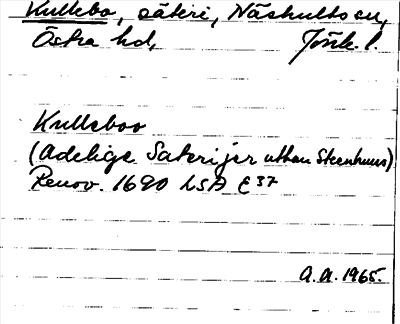 Kullebo, säteri, Näshults sn,
Östra hd, Jönk. l.
Kulleboo
(Adelige Saterijer uthan Steenhuus)
Renov. 1690 LSA E 37
A.A. 1965.